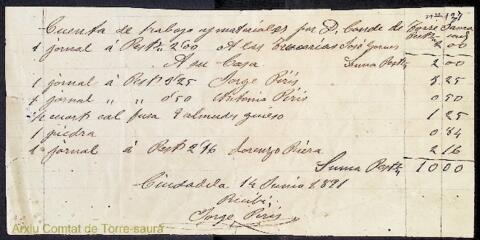 nº 127
Cuenta de trabajo y materiales por D. Conde de Torre Saura
1 jornal á Pest 2'00 A las José Gomes 2 00
A su Casa Suma Pest 2 00
1 jornal á Pest 3'25 Jorge Piris 3 25
1 jornal " " 0'50 Antonio Piris 0 50
cuart cal fusa 2 almudes grueso 1 25
1 piedra 0 84
1 jornal á Pest 2'16 Lorenzo Riera 2 16
Suma Pest 10 00
Ciudadela 14 Junio 1891
Recibí
Jorge Piris
Arxiu Comtat de Torre-saura